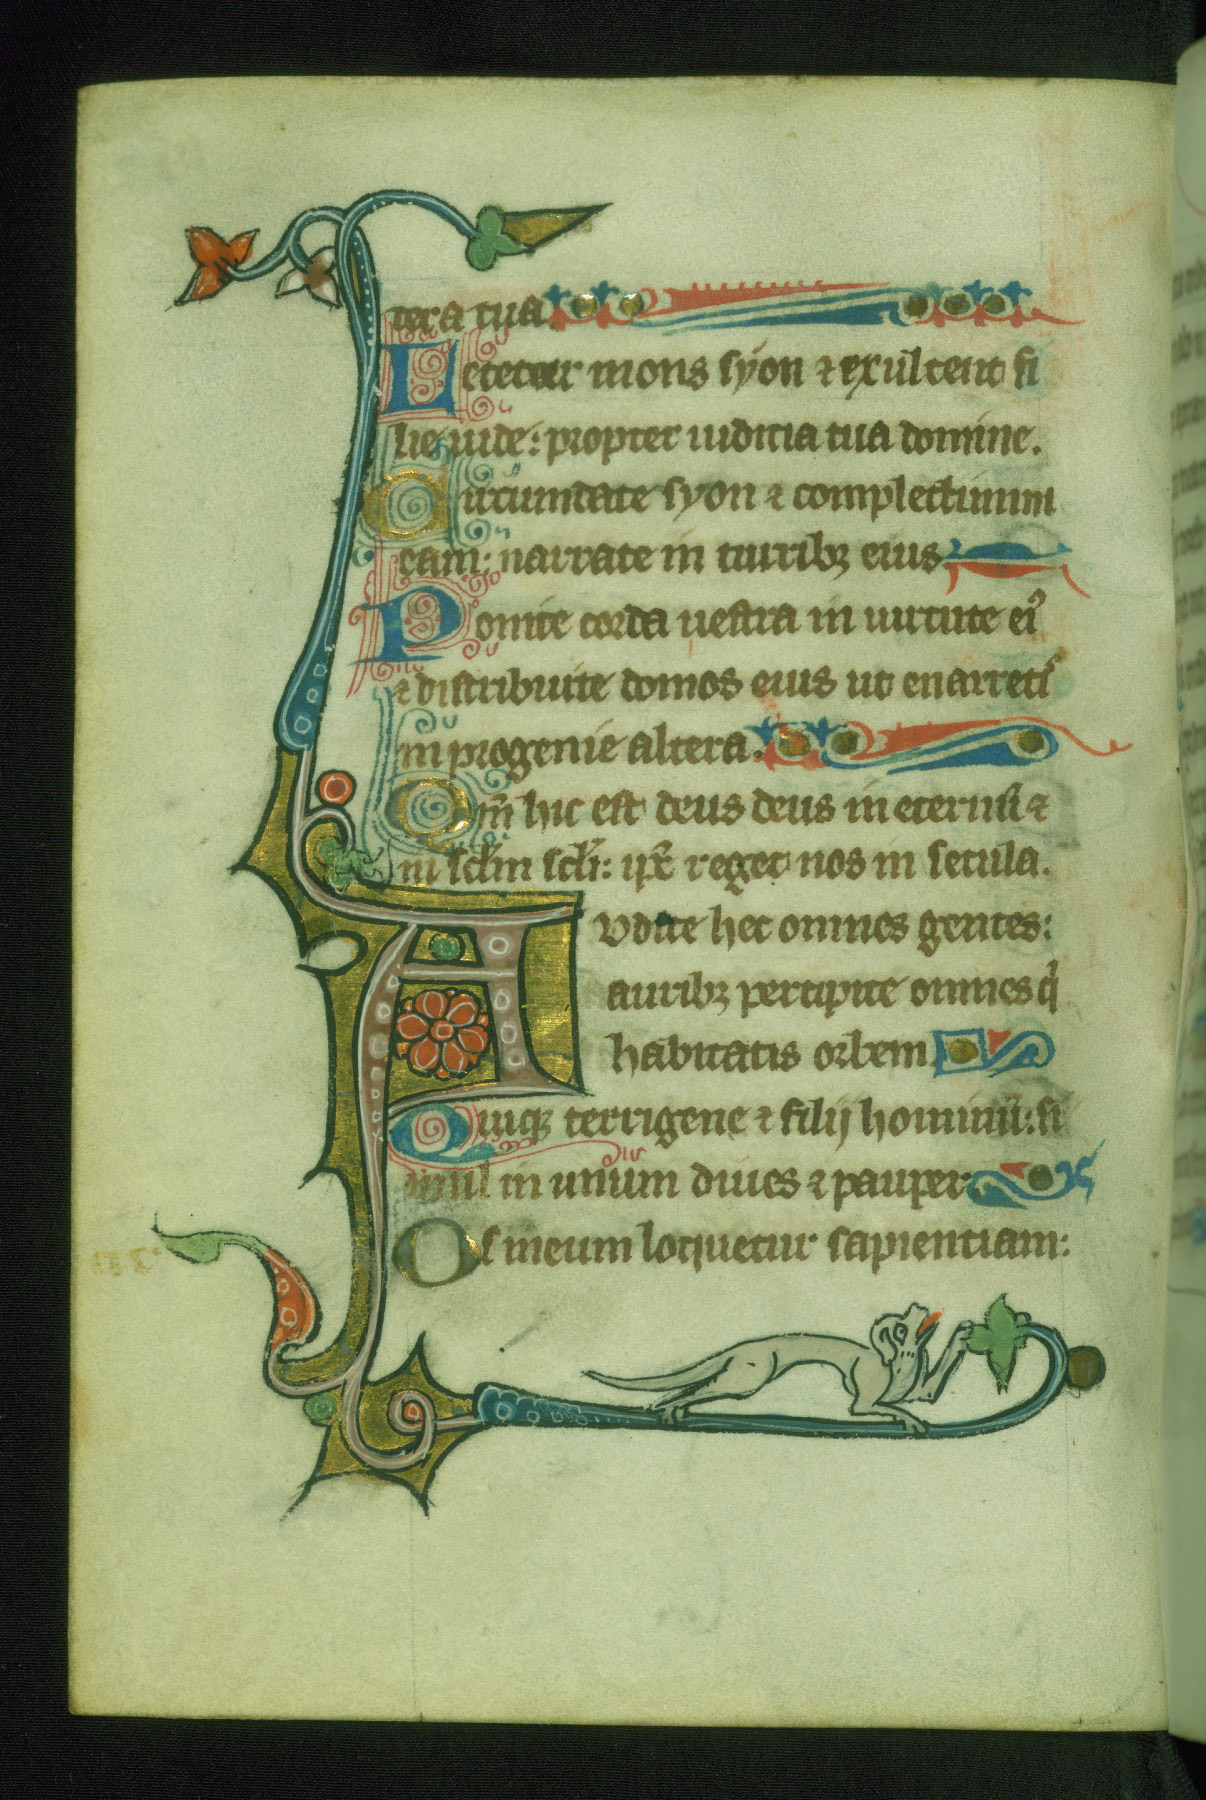 tera tua.
Letetur mons syon ⁊ exultent fi
lie iude: propter iudicia tua domine.
Circumdate syon ⁊ complectimini
eam: narrate in turribꝫ eius.
Ponite corda uestra in uirtute ei᾽
⁊ distribuite domos eius ut enarretis
in progenie altera.
Qm̄ hic est deus deus in eternū ⁊
in sclm̄ scli: ip̄e reget nos in secula.
Audite hec omnes gentes:
auribꝫ percipite omnes q̇
habitatis orbem.
Quiqꝫ terrigene ⁊ filij hominū: si
mul in unum diues ⁊ pauper.
Os meum loquetur sapientiam: